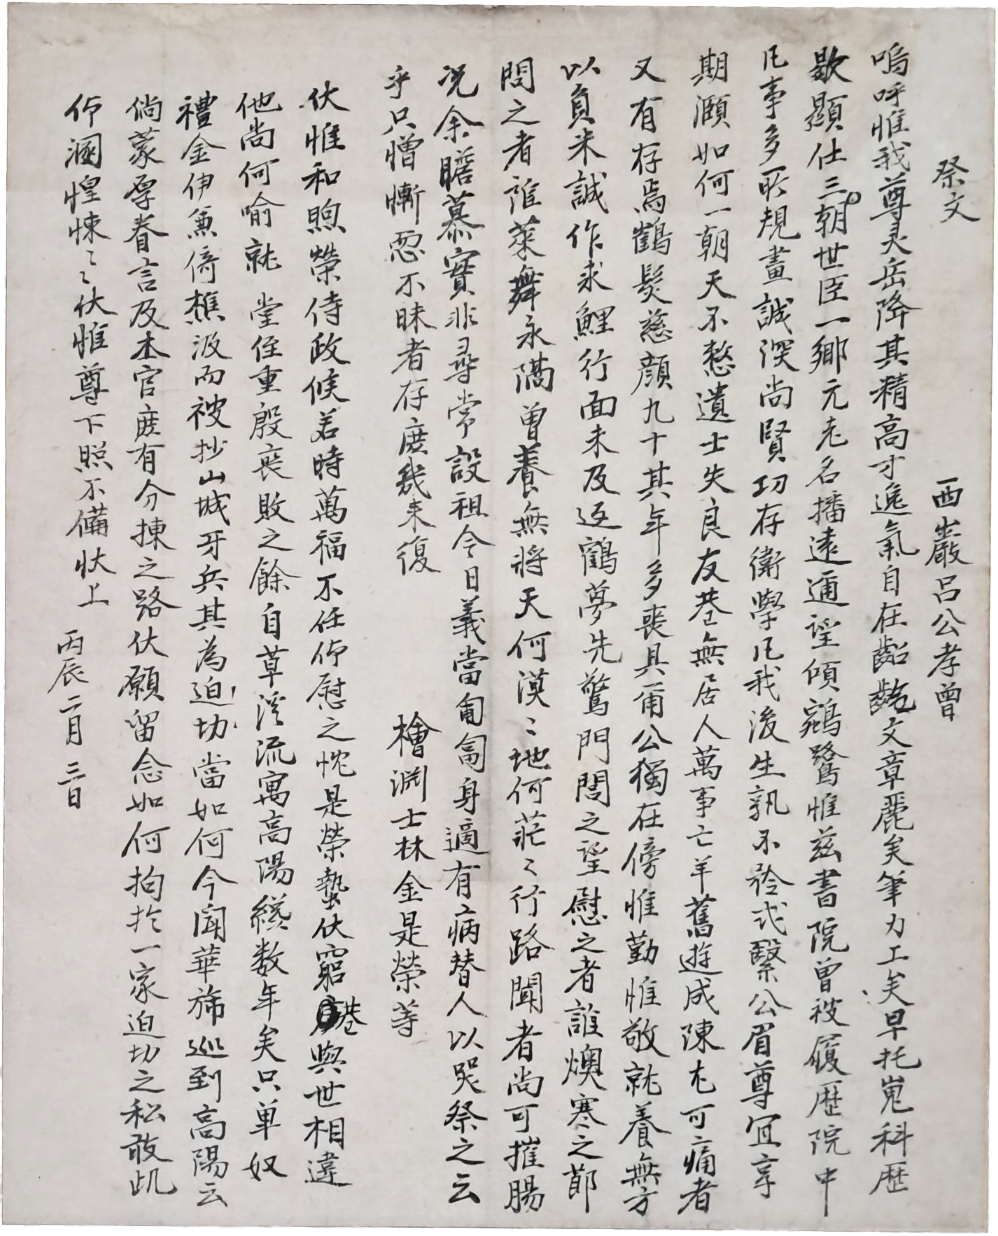 祭文
西巖呂公孝曾
嗚呼惟我尊灵岳降其精高才逸氣自在齠齕文章麗矣筆力工矣早托嵬科歷
歇顯仕三朝世臣一鄉元老名播遠邇望傾鵷鷺惟玆書院曾被履歷院中
凡事多所規畫誠深尚賢功存衛學凡我後生孰不矜式繄公眉尊宜享
期願如何一朝天不憖遺士失良友巷無居人萬事亡羊舊遊成陳尤可痛者
又有存焉鶴髮慈顔九十其年多喪具爾公獨在傍惟勤惟敬就養無方
以負米誠作求鯉行面未及返鶴夢先驚門閭之望慰之者誰燠寒之節
問之者誰萊舞永隔曾養無將天何漠〻地何茫〻行路聞者尚可摧腸
况余瞻慕實非尋常設祖今日義當匍匐身適有病替人以哭祭之云
乎只增慚恧不昧者存庶幾来復
檜淵士林金是榮等
伏惟和煦榮侍政候若時萬福不任仰慰之忱是榮蟄伏窮巷與世相違
他尚何喩就堂侄重殷喪敗之餘自草溪流寓高陽纔数年矣只單奴
禮金伊兼倚樵汲而被抄山城牙兵其為迫切當如何今聞華旆巡到高陽云
倘蒙厚眷言及本官庶有分揀之路伏願留念如何拘於一家迫切之私敢此
仰溷惶悚〻〻伏惟尊下照不備狀上
丙辰二月三日